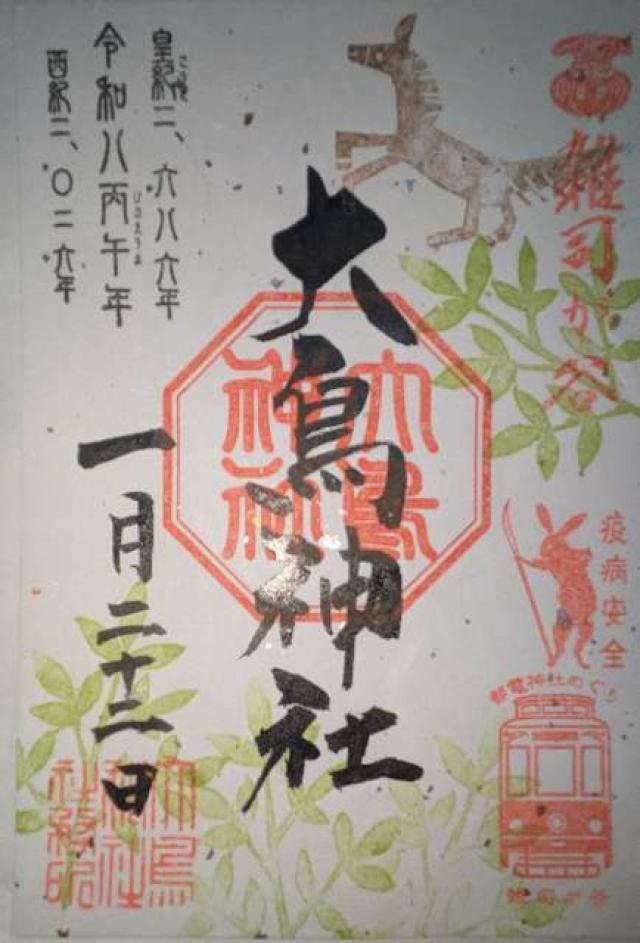 雑司が谷
皇紀二、六八六年
こうき
令和八丙午年
ひのえうま
西紀二、〇二六年
大鳥神社
大鳥神社
一月二十二日
疫病安全
都電神社めぐり
雑司が谷
大鳥神社社務所印